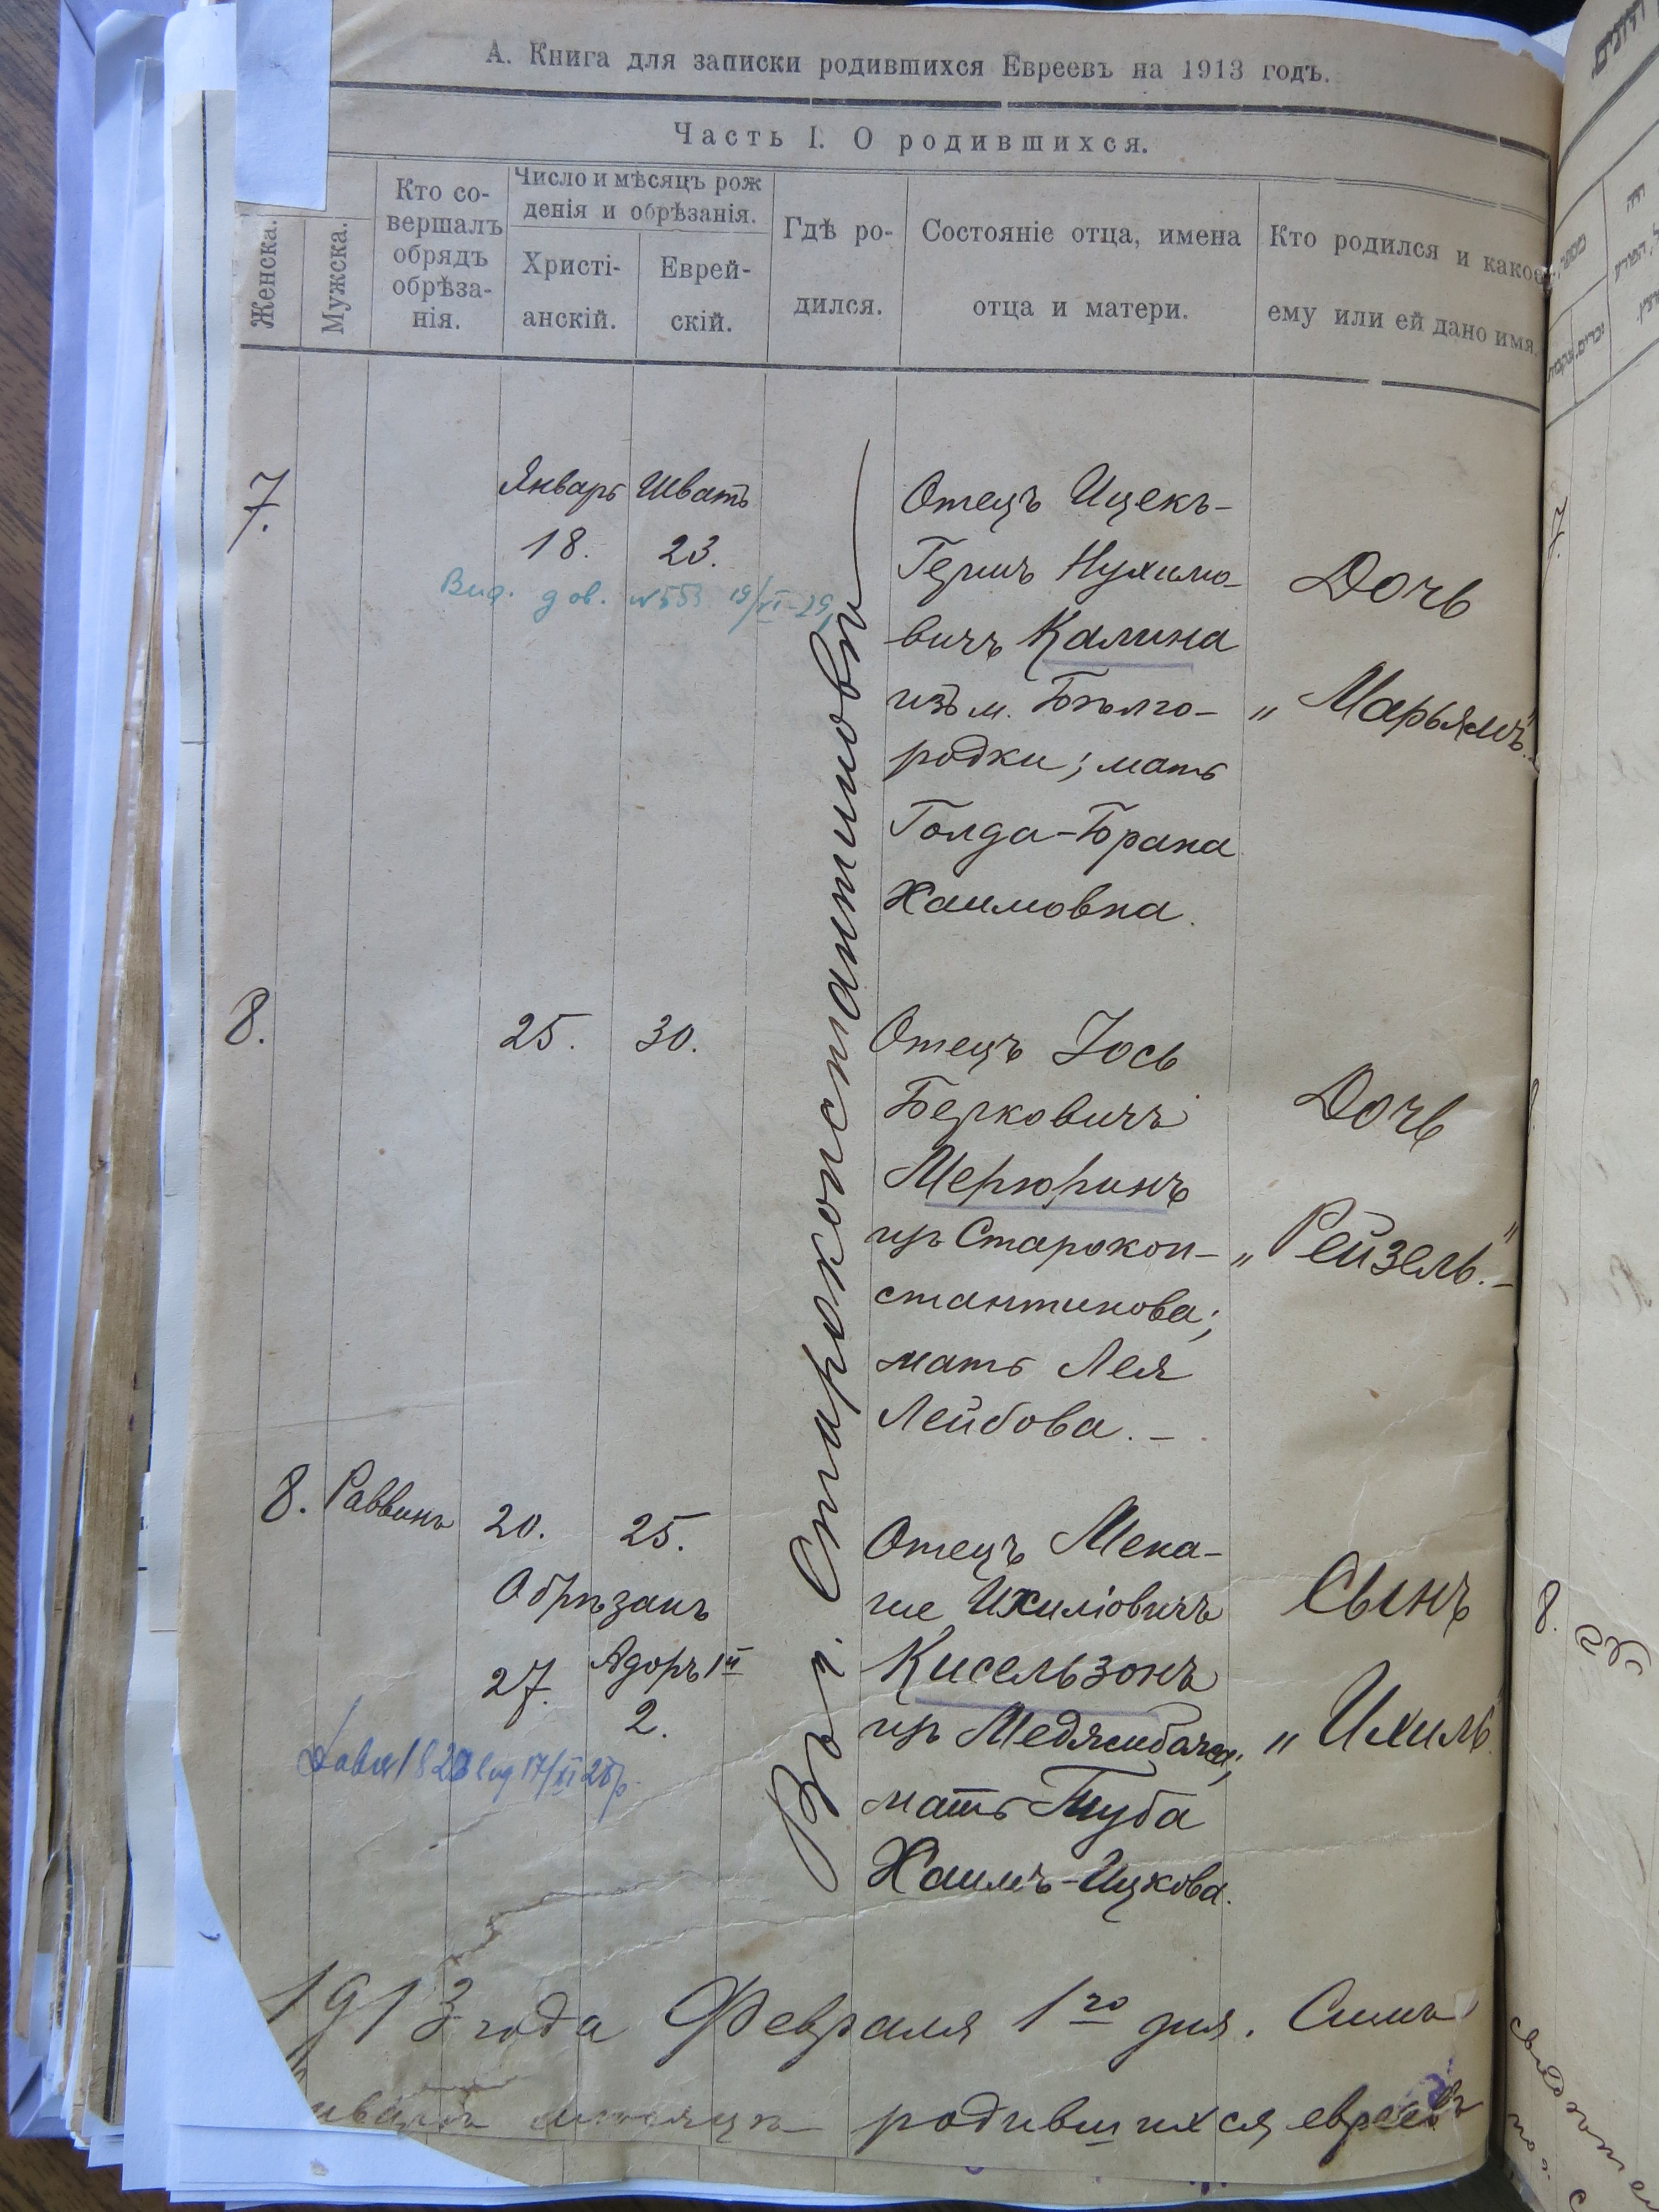 А. Книга для записки родившихся Евреевъ на 1913 годъ.
Часть I. О родившихся.
Женска.
Мужска.
Кто со-
вершалъ
обрядъ
обрѣза-
нія.
Число и мѣсяцъ рож
денія и обрѣзанія.
Христі-
анскій.
Еврей-
скій.
Гдѣ ро-
дился.
Состояніе отца, имена
отца и матери.
Кто родился и какое
ему или ей дано имя.
7.
Январь Шватъ
18. 23.
Вид. дов. №553 19/VI-29
Отецъ Ицекъ-
Гершъ Нухимо-
вичъ Калина
изъ м. Бѣлго-
родки; мать
Голда-Брана
Хаимовна.
Дочь
„Марьямъ".
Въ г. Староконстантиновѣ
8.
25. 30.
Отецъ Іось
Берковичъ
Мерюринъ
изъ Старокон-
стантинова;
мать Лея
Лейбова.-
Дочь
„Рейзель".-
8. Раввинъ 20. 25.
Обрѣзанъ
27. Адоръ 1й
2.
Отецъ Мена-
ше Ихиліовичъ
Кисельзонъ
изъ Меджибожа;
мать Туба
Хаимъ-Ицкова.
Сынъ
„Ихиль"
1913 года Февраля 1го дня. Симъ
мѣсяцѣ родившихся евреевъ